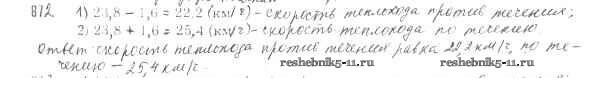 872 1) 23,8 – 1,6 = 22,2 (км/г) - скорость теплохода против течения;
2) 23,8 + 1,6 = 25,4 (км/г) - скорость теплохода по течению
Ответ скорость теплохода против течения равна 22,2 км/г, по те-
чению – 25,4 км/г.
reshebnik5-11.ru
reshebnik5-11.ru